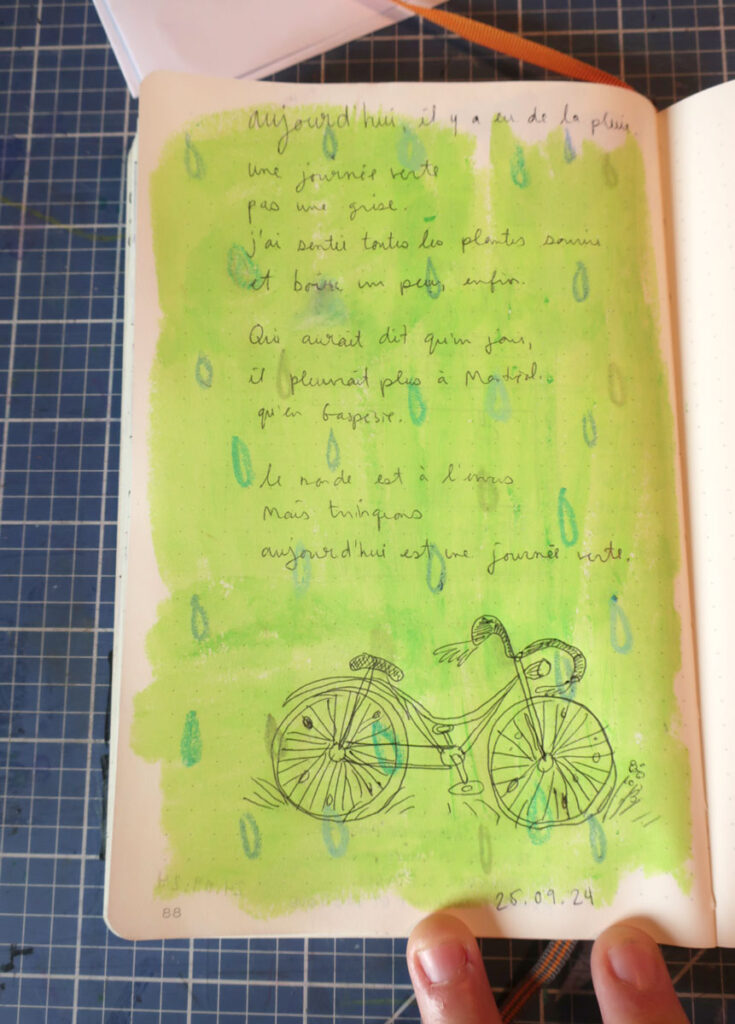 aujourd'hui, il y a eu de la pluie.
une journée verte
pas une grise.
j'ai sentie toutes les plantes sourire
et boire un peu, enfin.
Qui aurait dit qu'un jour,
il pleuvrait plus à
qu'en Gaspésie.
le monde est à l'envers
mais trinquons
aujourd'hui est une journée verte.
88
25.09.24